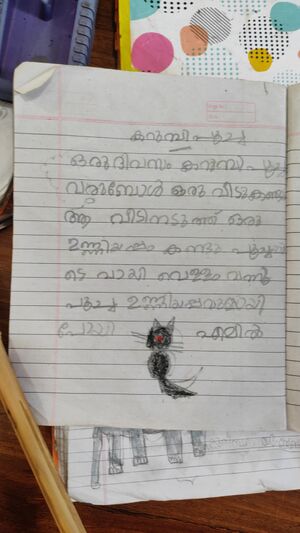 കറുമ്പി പൂച്ച
ഒരു ദിവസം കറുമ്പി പൂച്ച
വരുമ്പോൾ ഒരു വീടുകണ്ടു
ആ വീടിനടുത്ത് ഒരു
ഉണ്ണിയപ്പം കണ്ടു പൂച്ചയു
ടെ വായി വെള്ളം വന്നു
പൂച്ച ഉണ്ണിയപ്പവുമായി
പോയി എമിൽ